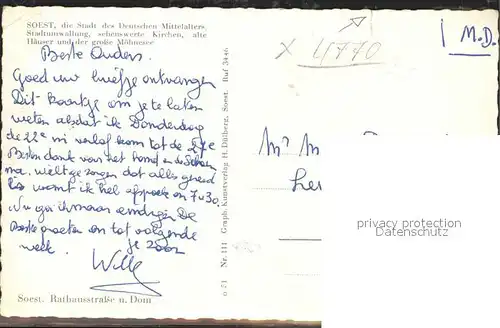 SOEST, die Stadt des Deutschen Mittelalters
Stadtumwallung, sehenswerte Kirchen, alte
Häuser und der große Möhnesee
4770
M.D.
Beste Ouders.
Goed uw briefje ontvangen
Dit kaartje om je te laten
weten alsdat ik Donderdag
de 22e mi verlof kom tot de 27e
Besten dank voor het
zorgen dat alles gereed
is want ik heb 7 u 30.
Nu ga ik maar eindigen De
Beste groeten en tot volgende
week. Je zoon
Willy
Soest. Rathausstraße u. Dom
o 51 Nr. 111 Graph. Kunstverlag H. Dülberg, Soest. Ruf 3446
privacy protection
www.oldthing.de